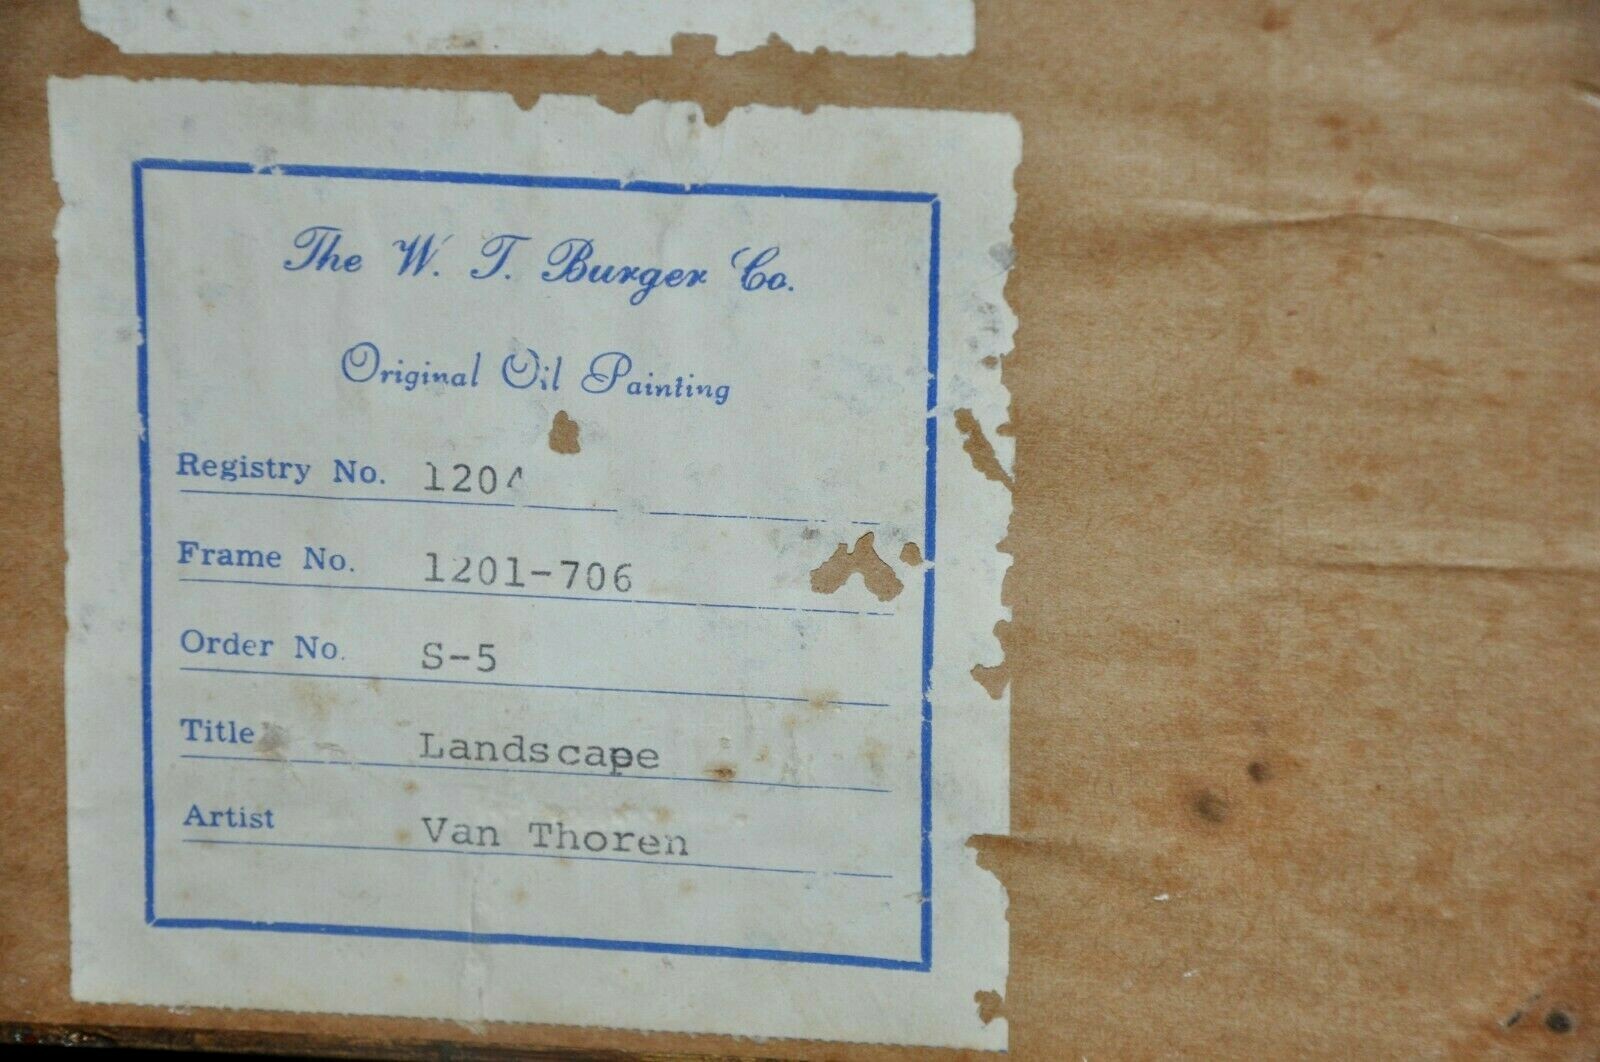 The W. T. Burger Co.
Original Oil Painting
Registry No. 1204
Frame No. 1201-706
Order No. S-5
Title Landscape
Artist Van Thoren